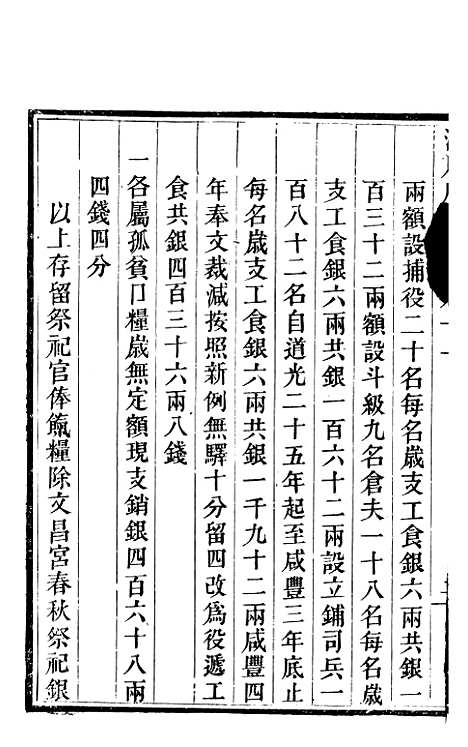 兩額設捕役二十名每名歲支工食銀六兩共銀一
百三十二兩額設斗級九名倉夫一十八名每名歲
支工食銀六兩共銀一百六十二兩設立鋪司兵一
百八十二名自道光二十五年起至咸豐三年底止
每名歲支工食銀六兩共銀一千九十二兩咸豐四
年奉文裁減按照新例無驛十分留四改爲役遞工
食共銀四百三十六兩八錢
一各屬孤貧口糧歲無定額現支銷銀四百六十八兩
四錢四分
以上存留祭祀官俸餼糧除文昌宮春秋祭祀銀